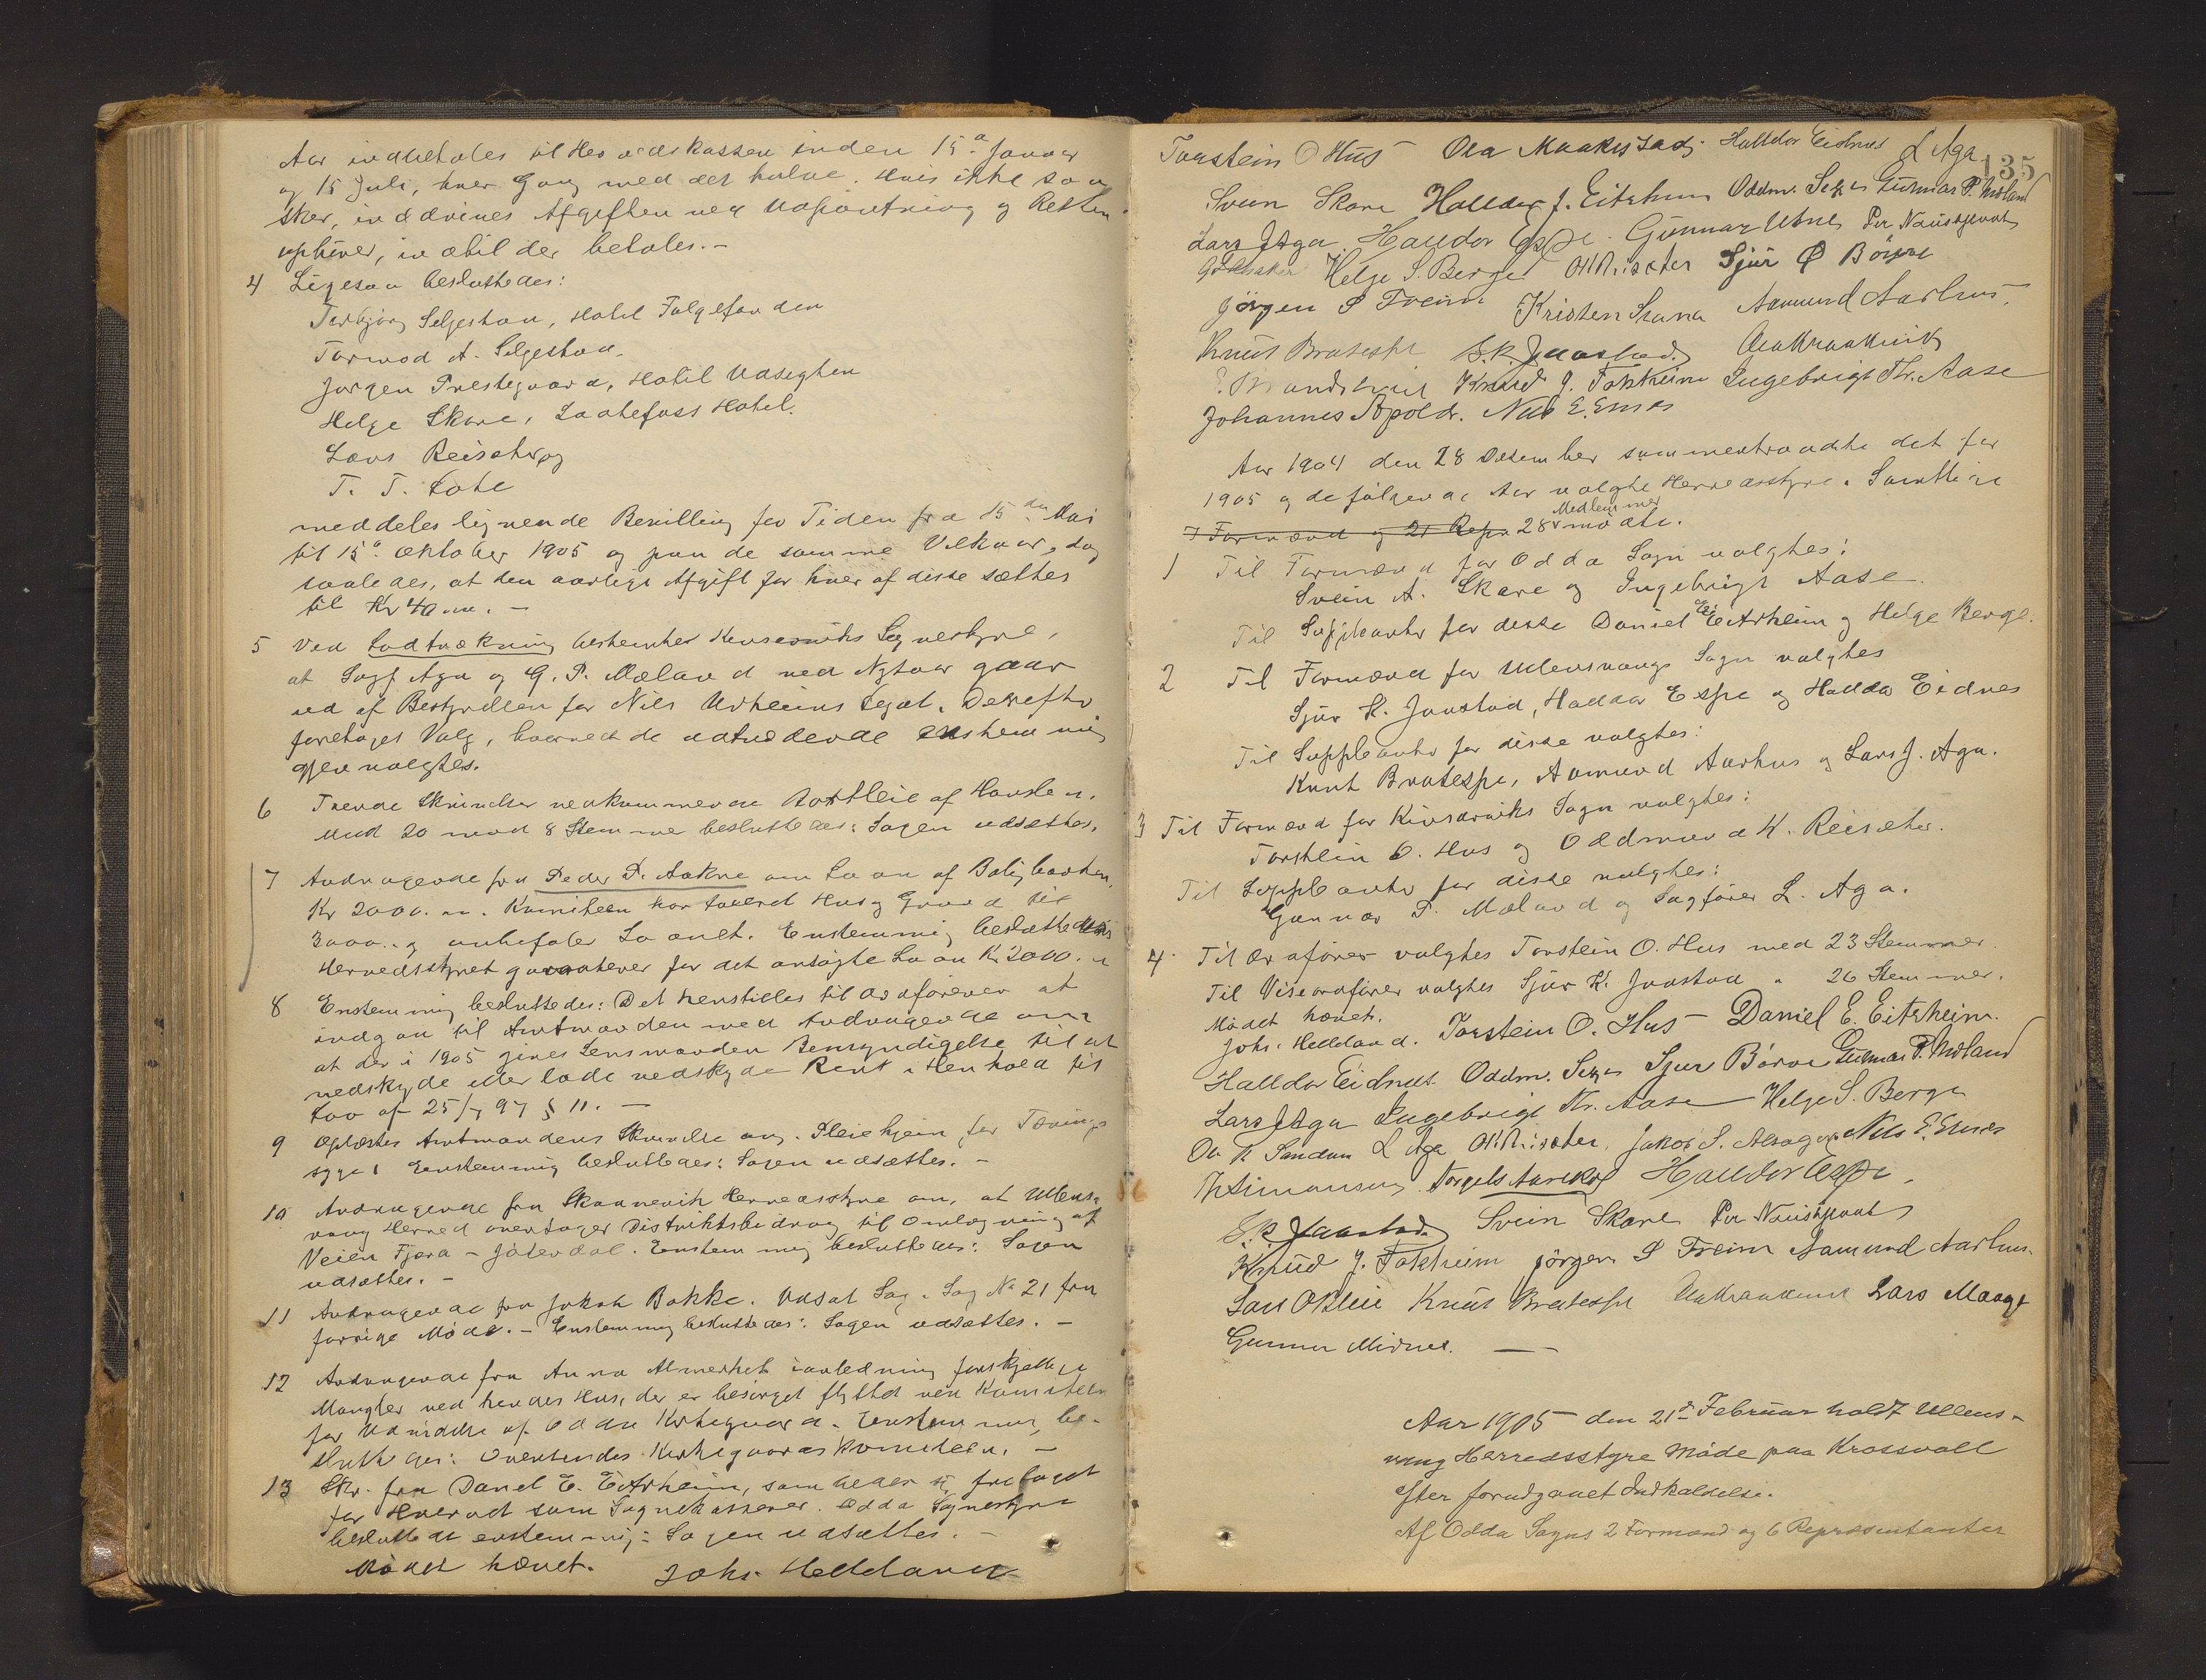 Aar indbetales til Herredskassen inden 15de Januar
og 15 Juli, hver Gang med det halve. Hvis ikke saa
sker, inddrives Afgiften ved Udpantning og Retten
ophører, indtil der betales. -
4 Ligesaa besluttedes:
Torbjørg Seljestad, Hotel Folgefonden
Tormod A. Seljestad.
Jørgen Prestegaard, Hotel Udsigten
Helge Skare, Laatefoss Hotel.
Lars Reisæter og
T. T. Lote
meddeles lignende Bevilling for Tiden fra 15de Mai
til 15de Oktober 1905 og paa de samme Vilkaar, dog
saaledes, at den aarlige Afgift for hver af disse sættes
til Kr 40.00. -
5 Ved Lodtrækning bestemtes Kinserviks Sognestyre,
at Sagf Aga og G. P. Mæland ved Nytaar gaar
ud af Bestyrelsen for Nils Utheims Legat. Derefter
foretoges Valg, hvorved de udtrædende enstemmig
gjenvalgtes.
6 Skrivelse vedkommende Bortleie af
Med 20 mod 8 Stemmer besluttedes: Sagen udsættes.
7 Andragende fra Peder P. Aakre om Laan af Boligbanken,
Kr 2000.00. Komiteen har taxeret Hus og Grund til
3000.- og anbefaler Laanet. Enstemmig besluttedes:
Herredsstyret garanterer for det ansøgte Laan Kr. 2000.00
8 Enstemmig besluttedes: Det henstilles til Ordføreren at
indgaa til Amtmanden med Andragende om
at der i 1905 gives Lensmanden Bemyndigelse til at
nedskyde eller lade nedskyde Ren i Henhold til
Lov af 25/7 97 § 11. -
9 Oplæstes Amtmandens Skrivelse ang. Pleiehjem for Tærings-
syge. Enstemmig besluttedes: Sagen udsættes. -
10 Andragende fra Skaanevik Herredsstyre om, at Ullens-
vang Herred overtager Distriktsbidrag til Omlægning af
Veien Fjæra - Jøsendal. Enstemmig besluttedes: Sagen
udsættes. -
11 Andragende fra Jakob Bakke. Udsat Sag. Sag No 21 fra
forrige Møde. - Enstemmig besluttedes: Sagen udsættes. -
12 Andragende fra Anna i anledning forskjellige
Mangler ved hendes Hus, der er besørget flyttet ved Komiteen
for Udvidelse af Odda Kirkegaard. Enstemmig be-
sluttedes: Oversendes Kirkegaardskomiteen. -
13 Skr. fra Daniel E. Eitrheim, som beder sig fritaget
for Hvervet som Sognekasserer. Odda Sognestyre
besluttede enstemmig: Sagen udsættes. -
Mødet hævet. Johs. Helland
135
Torstein O Hus Ola Maakestad. Halldor Eidnes L Aga
Svein Skare Halldor J. Eitrheim Oddm. Gunnar P. Mæland
Lars J Aga Halldor Espe. Gunnar Utne Per
Helge S. Berge O K Reisæter Sjur Ø Børve
Jørgen S Freim Kristen Aamund Aarhus.
Knut Bratespe S. K. Jaastad.
Knud J. Tokheim Ingebrigt Th. Aase
Johannes Apold. Nils E. Ernes
Aar 1904 den 28 Desember sammentraadte det for
1905 og de følgende Aar valgte Herredsstyre. Samtlige
7 Formænd og 21 Repr 28 Medlemmer mødte.
1 Til Formænd for Odda Sogn valgtes:
Svein A. Skare og Ingebrigt Aase.
Til Suppleanter for disse Daniel E. Eitrheim og Helge Berge.
2 Til Formænd for Ullensvangs Sogn valgtes
Sjur K. Jaastad, Haldor Espe og Haldor Eidnes
Til Suppleanter for disse valgtes:
Knut Bratespe, Aamund Aarhus og Lars J. Aga.
3 Til Formænd for Kinserviks Sogn valgtes:
Torstein O. Hus og Oddmund K. Reisæter.
Til Suppleanter for disse valgtes:
Gunnar P. Mæland og Sagfører L. Aga.
4. Til Ordfører valgtes Torstein O. Hus med 23 Stemmer.
Til Viseordfører valgtes Sjur K. Jaastad " 26 Stemmer.
Mødet hævet.
Johs. Helland. Torstein O. Hus Daniel E. Eitrheim.
Halldor Eidnes Oddm. Sjur Børve Gunnar P. Mæland
Lars J Aga Ingebrigt Th. Aase Helge S. Berge
L Aga O K Reisæter. Jakob S. Nils E. Ernes
Halldor Espe.
S. K. Jaastad. Svein Skare Per
Knud J. Tokheim Jørgen S Freim Aamund Aarhus.
Knut Bratespe Lars Maage
Gunnar Midnes. -
Aar 1905 den 21de Februar holdt Ullens-
vang Herredsstyre Møde paa Krossvoll
efter forudgaaet Indkaldelse.
Af Odda Sogns 2 Formænd og 6 Repræsentanter